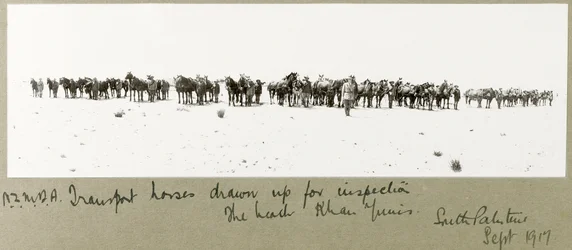 N.Z.M.B.A. Transport horses drawn up for inspection
The beach Khan Yunis.
South Palestine
Sept 1917